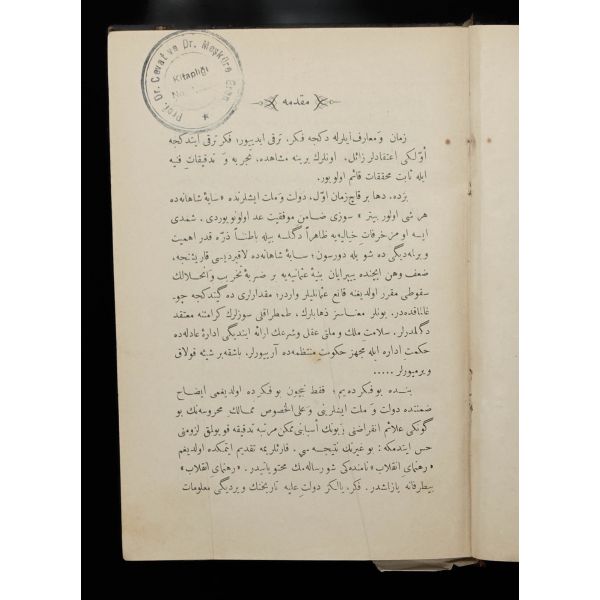 Prof. Dr. Cevat ve Dr. Meşküre Eren
Kitaplığı
No.
مقدمه
زمان و معارف ایلرله دکجه فکر، ترقی ایدییور؛ فکر ترقی ایتدکجه
أوّلکی اعتقادلر زائل، اونلرك یرینه مشاهده، تجربه و تدقیقات فنیه
ایله ثابت محققات قائم اولویور.
بزده، دها بر قاچ زمان اوّل، دولت و ملت ایشلرنده «سایهٔ شاهانه‌ده
هر شی اولور بیتر» سوزی ضامن موفقیت عد اولونویوردی. شمدی
ایسه او مزخرفات خیالیه‌یه ظاهراً دگلسه بیله باطناً ذرّه قدر اهمیت
ویرنه‌دیگی ده شویله دورسون؛ سایهٔ شاهانه‌ده لاقیردیسی قارئینجه،
ضعف وهن ایچنده یپرانان بنیهٔ عثمانیه‌یه بر ضربهٔ تخریب و انحلالك
سقوطی مقرر اولدیغنه قانع عثمانلیلر واردر؛ مقدارلری ده گیتدکجه چو-
غالماقده‌در. بونلر معناسز ذهابلرك، طمطراقلی سوزلرك کرامتنه معتقد
دگلدرلر. سلامت ملك و ملتی عقل و شرعك ارائه ایتدیگی ادارهٔ عادله‌ده
حکمت اداره ایله مجهز حکومت منتظمه‌ده آرییورلر. باشقه بر شیئه قولاق
ویرمیورلر.....
بنده بو فکرده‌یم؛ فقط نیچون بو فکرده اولدیغمی ایضاح
ضمننده دولت و ملت ایشلرینی و علی الخصوص ممالك محروسه‌نك بو
گونکی علائم انقراضنی زبونك أسبابنی ممکن مرتبه تدقیقه قویولمق لزومنی
حس ایتدمکه: بو غیرتك نتیجه‌سی، قارئلریمه تقدیم ایتمکده اولدیغم
«رهنمای انقلاب» نامنده‌کی شو رساله‌نك محتویاتیدر. «رهنمای انقلاب»
بیطرفانه یازلشدر. فکر، یالکز دولت علیه تاریخنك ویردیگی معلومات